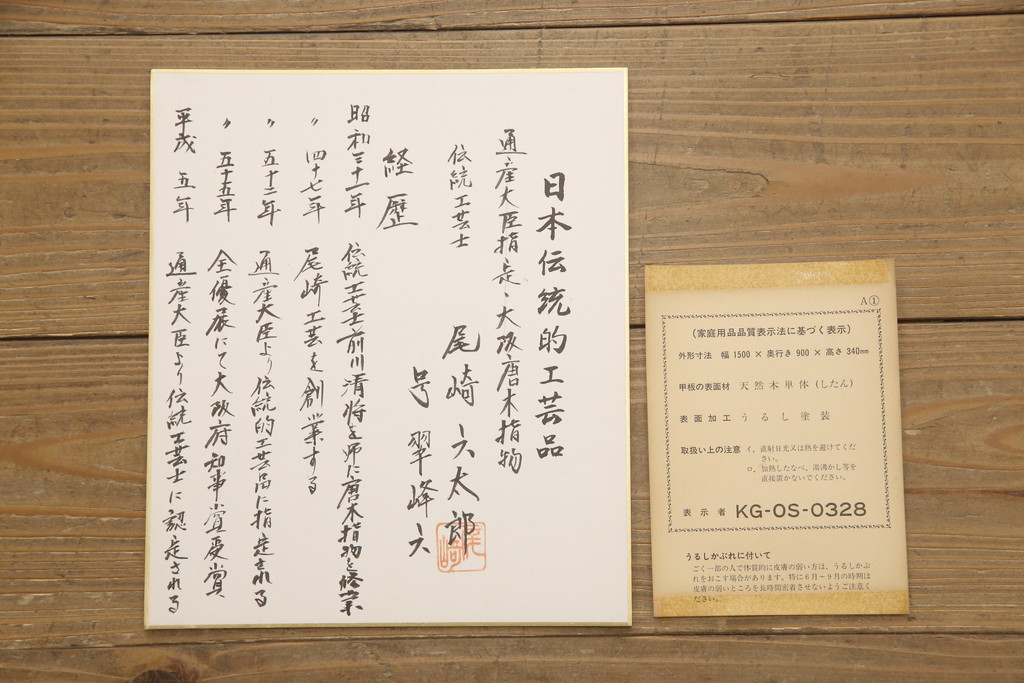 日本伝統的工芸品
通産大臣指定、大阪唐木指物
伝統工芸士 尾崎六太郎
号 翠峰六
尾崎
経歴
昭和三十一年 伝統工芸士前川清将を師に唐木指物を修業
〃 四十七年 尾崎工芸を創業する
〃 五十二年 通産大臣より伝統的工芸品に指定される
〃 五十五年 全優展にて大阪府知事賞受賞
平成 五年 通産大臣より伝統工芸士に認定される
A①
(家庭用品品質表示法に基づく表示)
外形寸法 幅 1500 × 奥行き 900 × 高さ 340mm
甲板の表面材 天然木単体(したん)
表面加工 うるし塗装
取扱い上の注意 イ、直射日光又は熱を避けてくだ
さい。
ロ、加熱したなべ、湯沸かし等を
直接置かないでください。
表示者 KG-OS-0328
うるしかぶれに付いて
ごく一部の人で体質的に皮膚の弱い方は、うるしかぶ
れをおこす場合があります。特に6月-9月の時期は
皮膚の弱いところを長時間密着させないようご注意く
ださい。